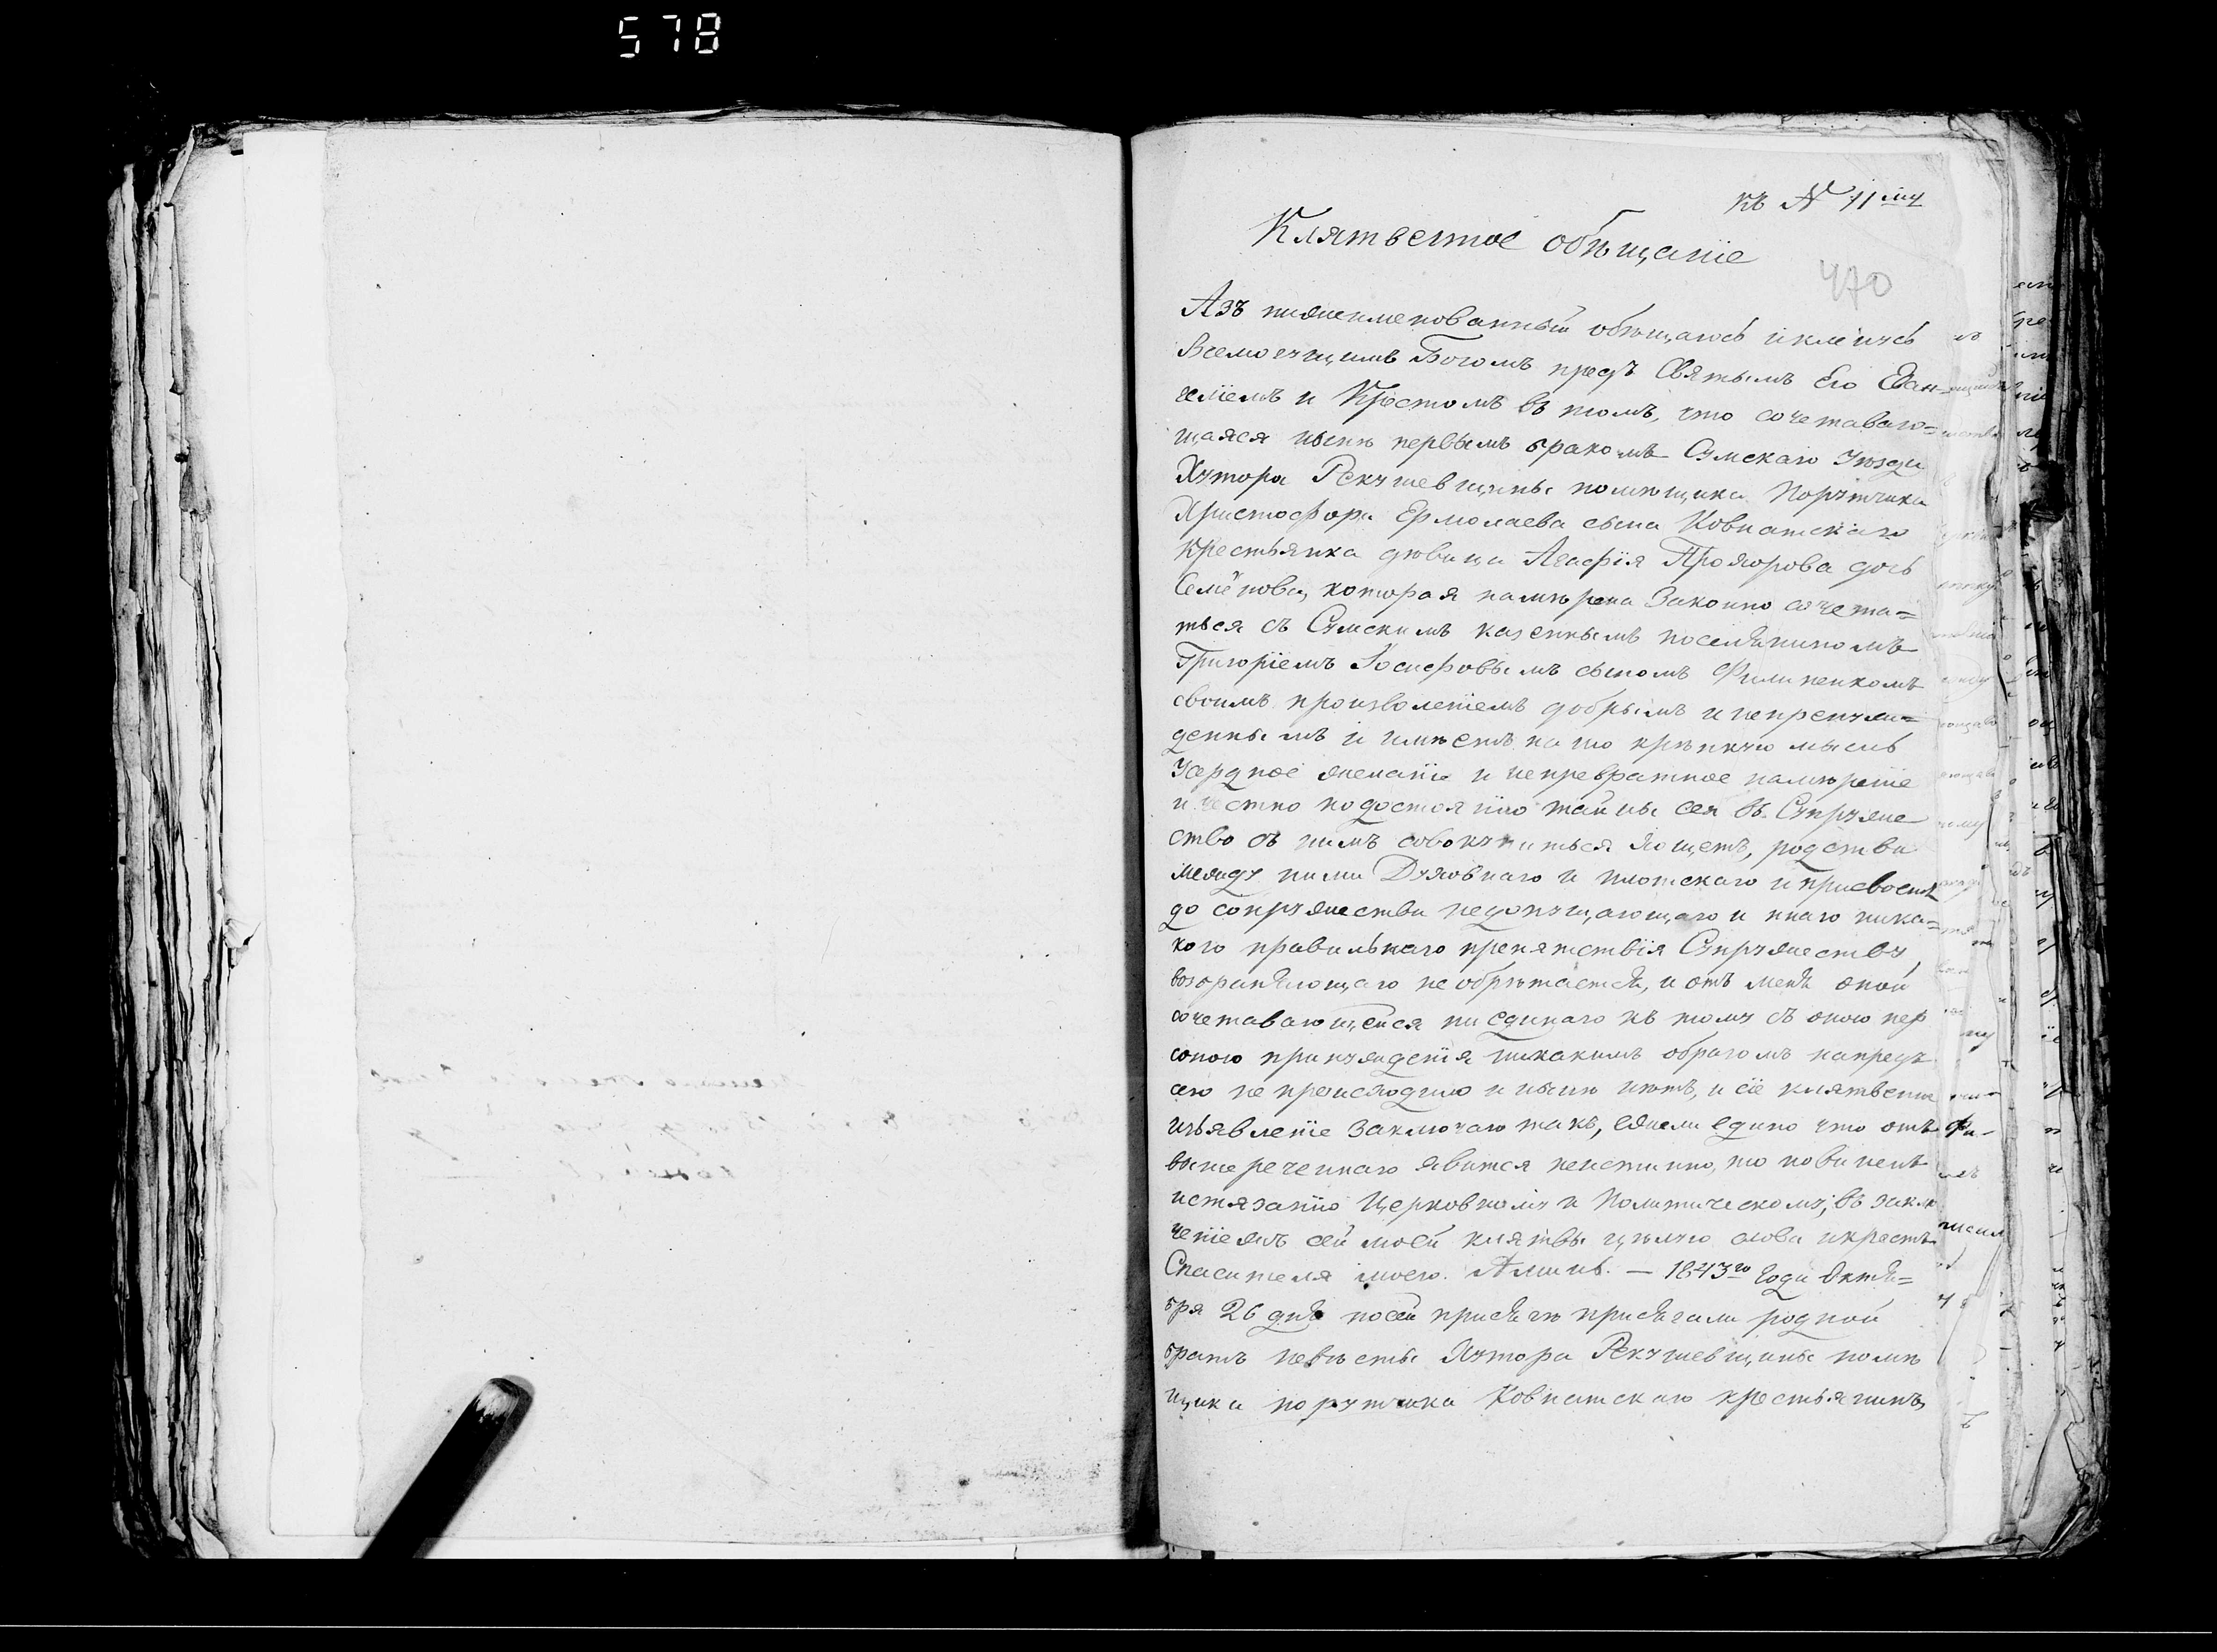 578
къ № 11му
Клятвенное обѣщаніе
470
Азъ нижеименованный обѣщаюсь и кленусь
Всемогущимъ Богомъ предъ Святымъ Его Еван=
геліемъ и Крестомъ въ томъ, что сочетаваю=
щаяся нынѣ первымъ бракомъ Сумскаго Уѣзда
Хутора Рекушевщины помѣщика Порутчика
Христофора Ермолаева сына Ковнатскаго
Крестьянка дѣвица Агафія Прохорова дочь
Семёнова, которая намѣрена Законно сочета=
ться съ Сумскимъ казеннымъ поселяниномъ
Григоріемъ Іосифовымъ сыномъ Филипенкомъ
своимъ произволеніемъ добрымъ и непренуж=
деннымъ и имѣетъ на то крѣпкую мысль
Усердное желаніе и непревратное намѣреніе
и честно по достоянію тайны сея въ Супруже
ство съ нимъ совокупиться хощетъ, родства
между ними Духовнаго и плотскаго и присвоенія
до сопружества недопущающаго и инаго ника=
кого правильнаго препятствія Супружеству
возораняющаго не обрѣтается, и отъ меня оной
сочетавающейся ни единаго къ тому съ оною пер
соною принужденія никакимъ образомъ напредъ
сего не происходило и нынѣ нѣтъ, и сіе клятвенное
изъявленіе заключаю такъ, ежели едино что отъ
вышереченнаго явится неистинно, то повиненъ
истязанію Церковному и Политическому; въ заклю
ченіежъ сей моей клятвы цѣлую слова и крестъ
Спасителя моего. Аминь. — 1843го Года Октя=
бря 26 дня по сей присягѣ присягали родной
братъ невѣсты Хутора Рекушевщины помѣ
щика порутчика Ковнатскаго крестьянинъ